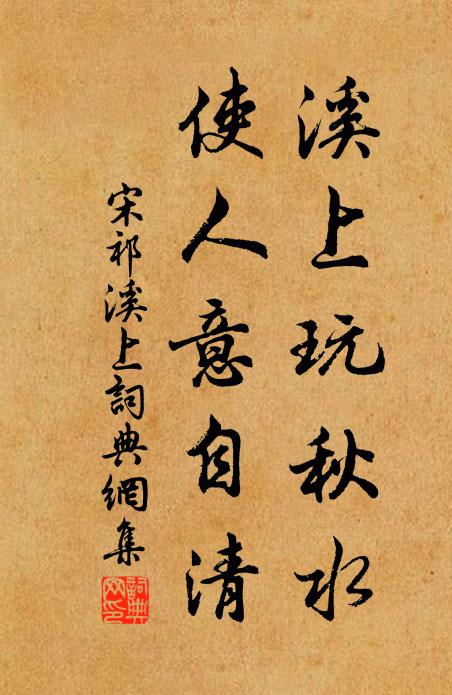 溪上玩秋水
使人意自清
宋祁溪上詞典網集
詞典網印